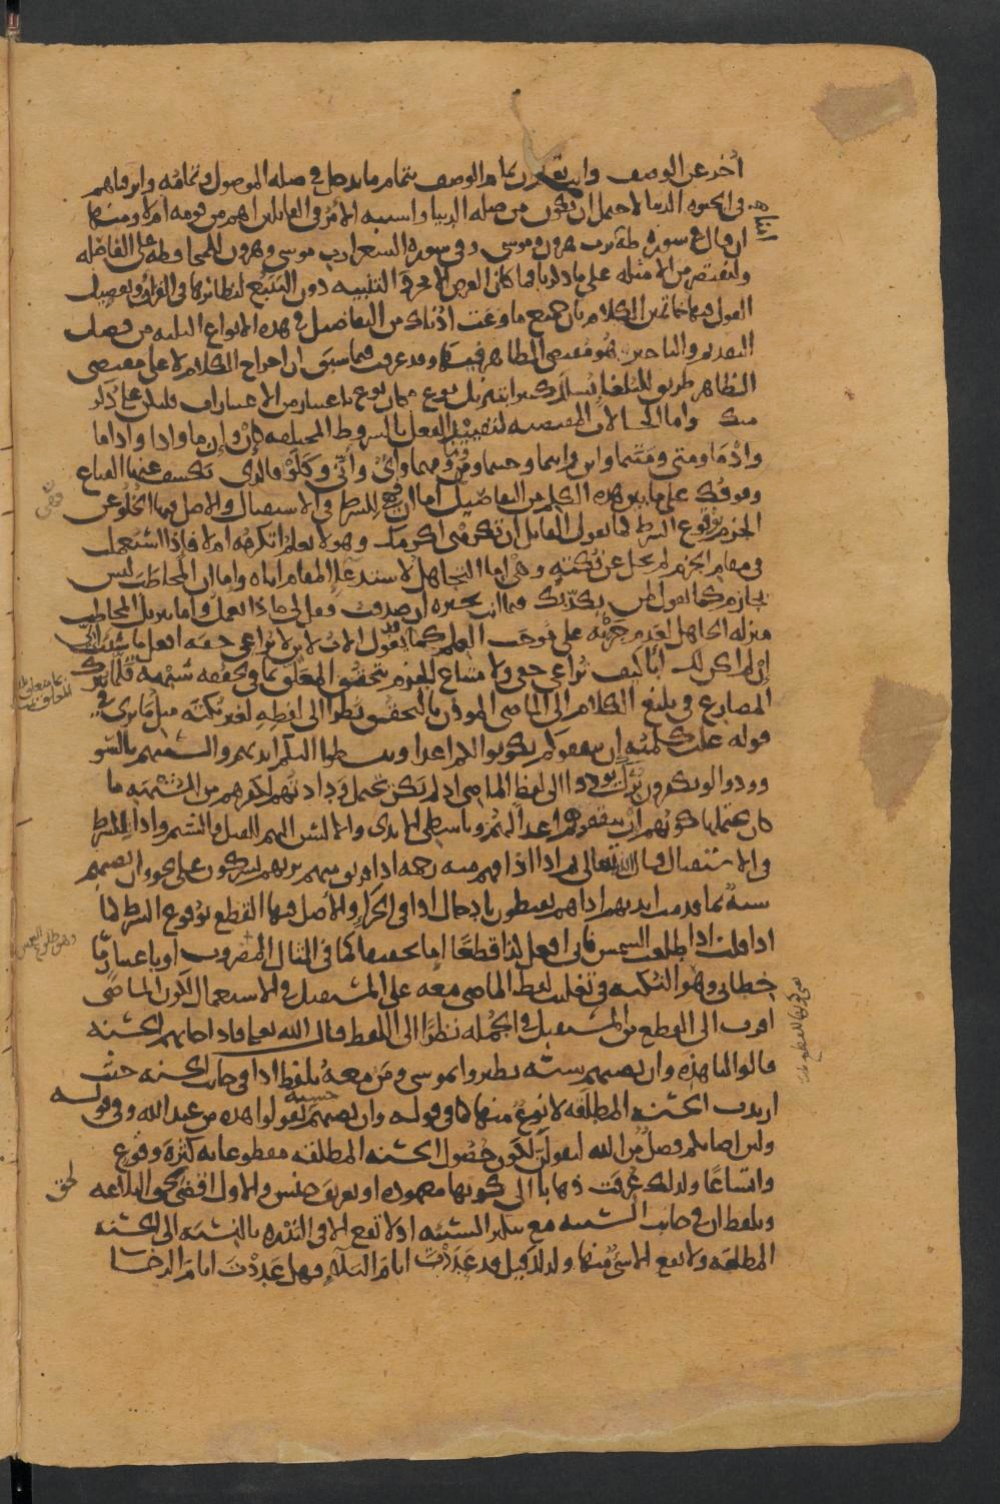 أخر عن الوصف وأنت تعلم أن تمام الوصف بتمام ما يدخل في صلة الموصول وتمامه وأترفناهم
في الحيوة الدنيا لاحتمل أن يكون من صلة الدنيا واشتبه الأمر في القائلين أهم من قومه أم لا ومنها
أن قال في سورة طه آمنا برب هرون وموسى وفي سورة الشعرا رب موسى وهرون للمحافظة على الفاصلة
ولنقتصر من الأمثلة على ما ذكرنا فما كان الغرض إلا مجرد التنبيه دون التتبع لنظائرها في القرآن وتفصيل
القول فيها خاتمين الكلام بأن جميع ما وعت أذناك من التفاصيل في هذه الأنواع الثلثة من فصل
التقديم والتأخير هو مقتضى الظاهر فيها وقد عرفت فيما سبق أن إخراج الكلام لا على مقتضى
الظاهر طريق للبلغاء يسلك كثيرا بتنزيل نوع مكان نوع باعتبار من الاعتبارات فليكن على ذكر
منك وأما الحالات المقتضية لتقييد الفعل بالشروط المختلفة كإن وإن ما وإذا وإذا ما
وإذ ما ومتى ومتى ما وأين وأينما وحيثما ومن وما ومهما وأي وأنى وكلو فالذي يكشف عنها القناع
وقوفك على ما بين هذه الكلم من التفاصيل أما إن فهي للشرط في الاستقبال والأصل فيها الخلو عن
الجزم بوقوع الشرط كما يقول القائل إن تكرمني أكرمك وهو لا يعلم أتكرمه أم لا فإذا استعملت
في مقام الجزم لم تخل عن نكتة وهي إما التجاهل لاستدعاء المقام إياه وإما أن المخاطب ليس
بجازم كما تقول لمن يكذبك فيما أنت تخبره إن صدقت فقل لي ماذا تعمل وإما تنزيل المخاطب
منزلة الجاهل لعدم جريه على موجب العلم كما يقول الأب لابن لا يراعي حقه افعل ما شئت
إن لم أكن لك أبا كيف تراعي حقي ولامتناع الجزم بتحقق المعلق بما في تحققه شبهة قلما يترك
المضارع في بليغ الكلام إلى الماضي المؤذن بالتحقق نظرا إلى لفظه لغير نكتة مثل ما ترى في
قوله علت كلمته إن يثقفوكم يكونوا لكم أعداء ويبسطوا إليكم أيديهم وألسنتهم بالسوء
وودوا لو تكفرون ترك يودوا إلى لفظ الماضي إذ لم تكن تحتمل ودادتهم لكفرهم من الشبهة ما
كان يحتملها كونهم إن يثقفوهم أعداء لهم وباسطي الأيدي والألسن إليهم للقتل والشتم وإذا للشرط
في الاستقبال قال الله تعالى ثم إذا أذاقهم منه رحمة إذا فريق منهم بربهم يشركون على نحو وإن تصبهم
سيئة بما قدمت أيديهم إذا هم يقنطون بإدخال إذا في الجزاء والأصل فيها القطع بوقوع الشرط كما
إذا قلت إذا طلعت الشمس فإني أفعل كذا قطعا إما تحقيقا كما في المثال المضروب أو باعتبار ما
خطابي وهو النكتة في تغليب لفظ الماضي معه على المستقبل في الاستعمال لكون الماضي
أقرب إلى القطع من المستقبل في الجملة نظرا إلى اللفظ قال الله تعالى فإذا جاءتهم الحسنة
قالوا لنا هذه وإن تصبهم سيئة يطيروا بموسى ومن معه بلفظ إذا في جانب الحسنة حيث
أريدت الحسنة المطلقة لا نوع منها كما في قوله وإن تصبهم حسنة يقولوا هذه من عند الله وفي قوله
ولئن أصابكم فضل من الله ليقولن لكون حصول الحسنة المطلقة مقطوعا به كثرة وقوع
واتساعا ولذلك عرفت ذهابا إلى كونها معهودة أو تعريف جنس والأول أقضى لحق البلاغة
وبلفظ إن في جانب السيئة مع تنكير السيئة إذ لا تقع إلا في الندرة بالنسبة إلى الحسنة
المطلقة ولا يقع إلا شيء منها ولذلك قيل قد عددت أيام البلاء فهل عددت أيام الرخاء